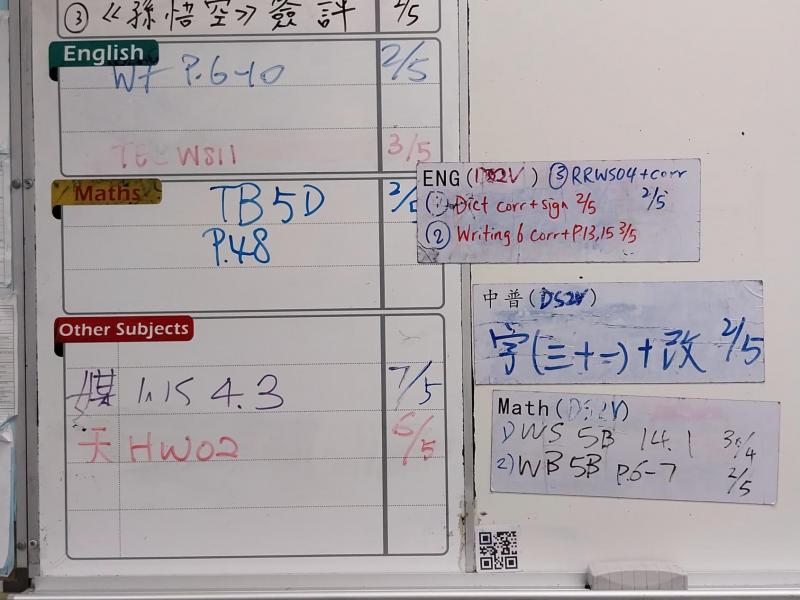 ③ 《孫悟空》簽評 2/5
English
P.6-10 2/5
WS11 3/5
Maths
TB 5D
P.48
Other Subjects
4.3 7/5
天 HW02 6/5
ENG ( ) ③ RRWS04+corr 2/5
① Dict corr+sign 2/5
② Writing 6 corr+P.13,15 3/5
中普(DS2V)
字(三十一)+改 2/5
Math(DS2V)
1) WS 5B 14.1 30/4
2) WB 5B P.6-7 2/5